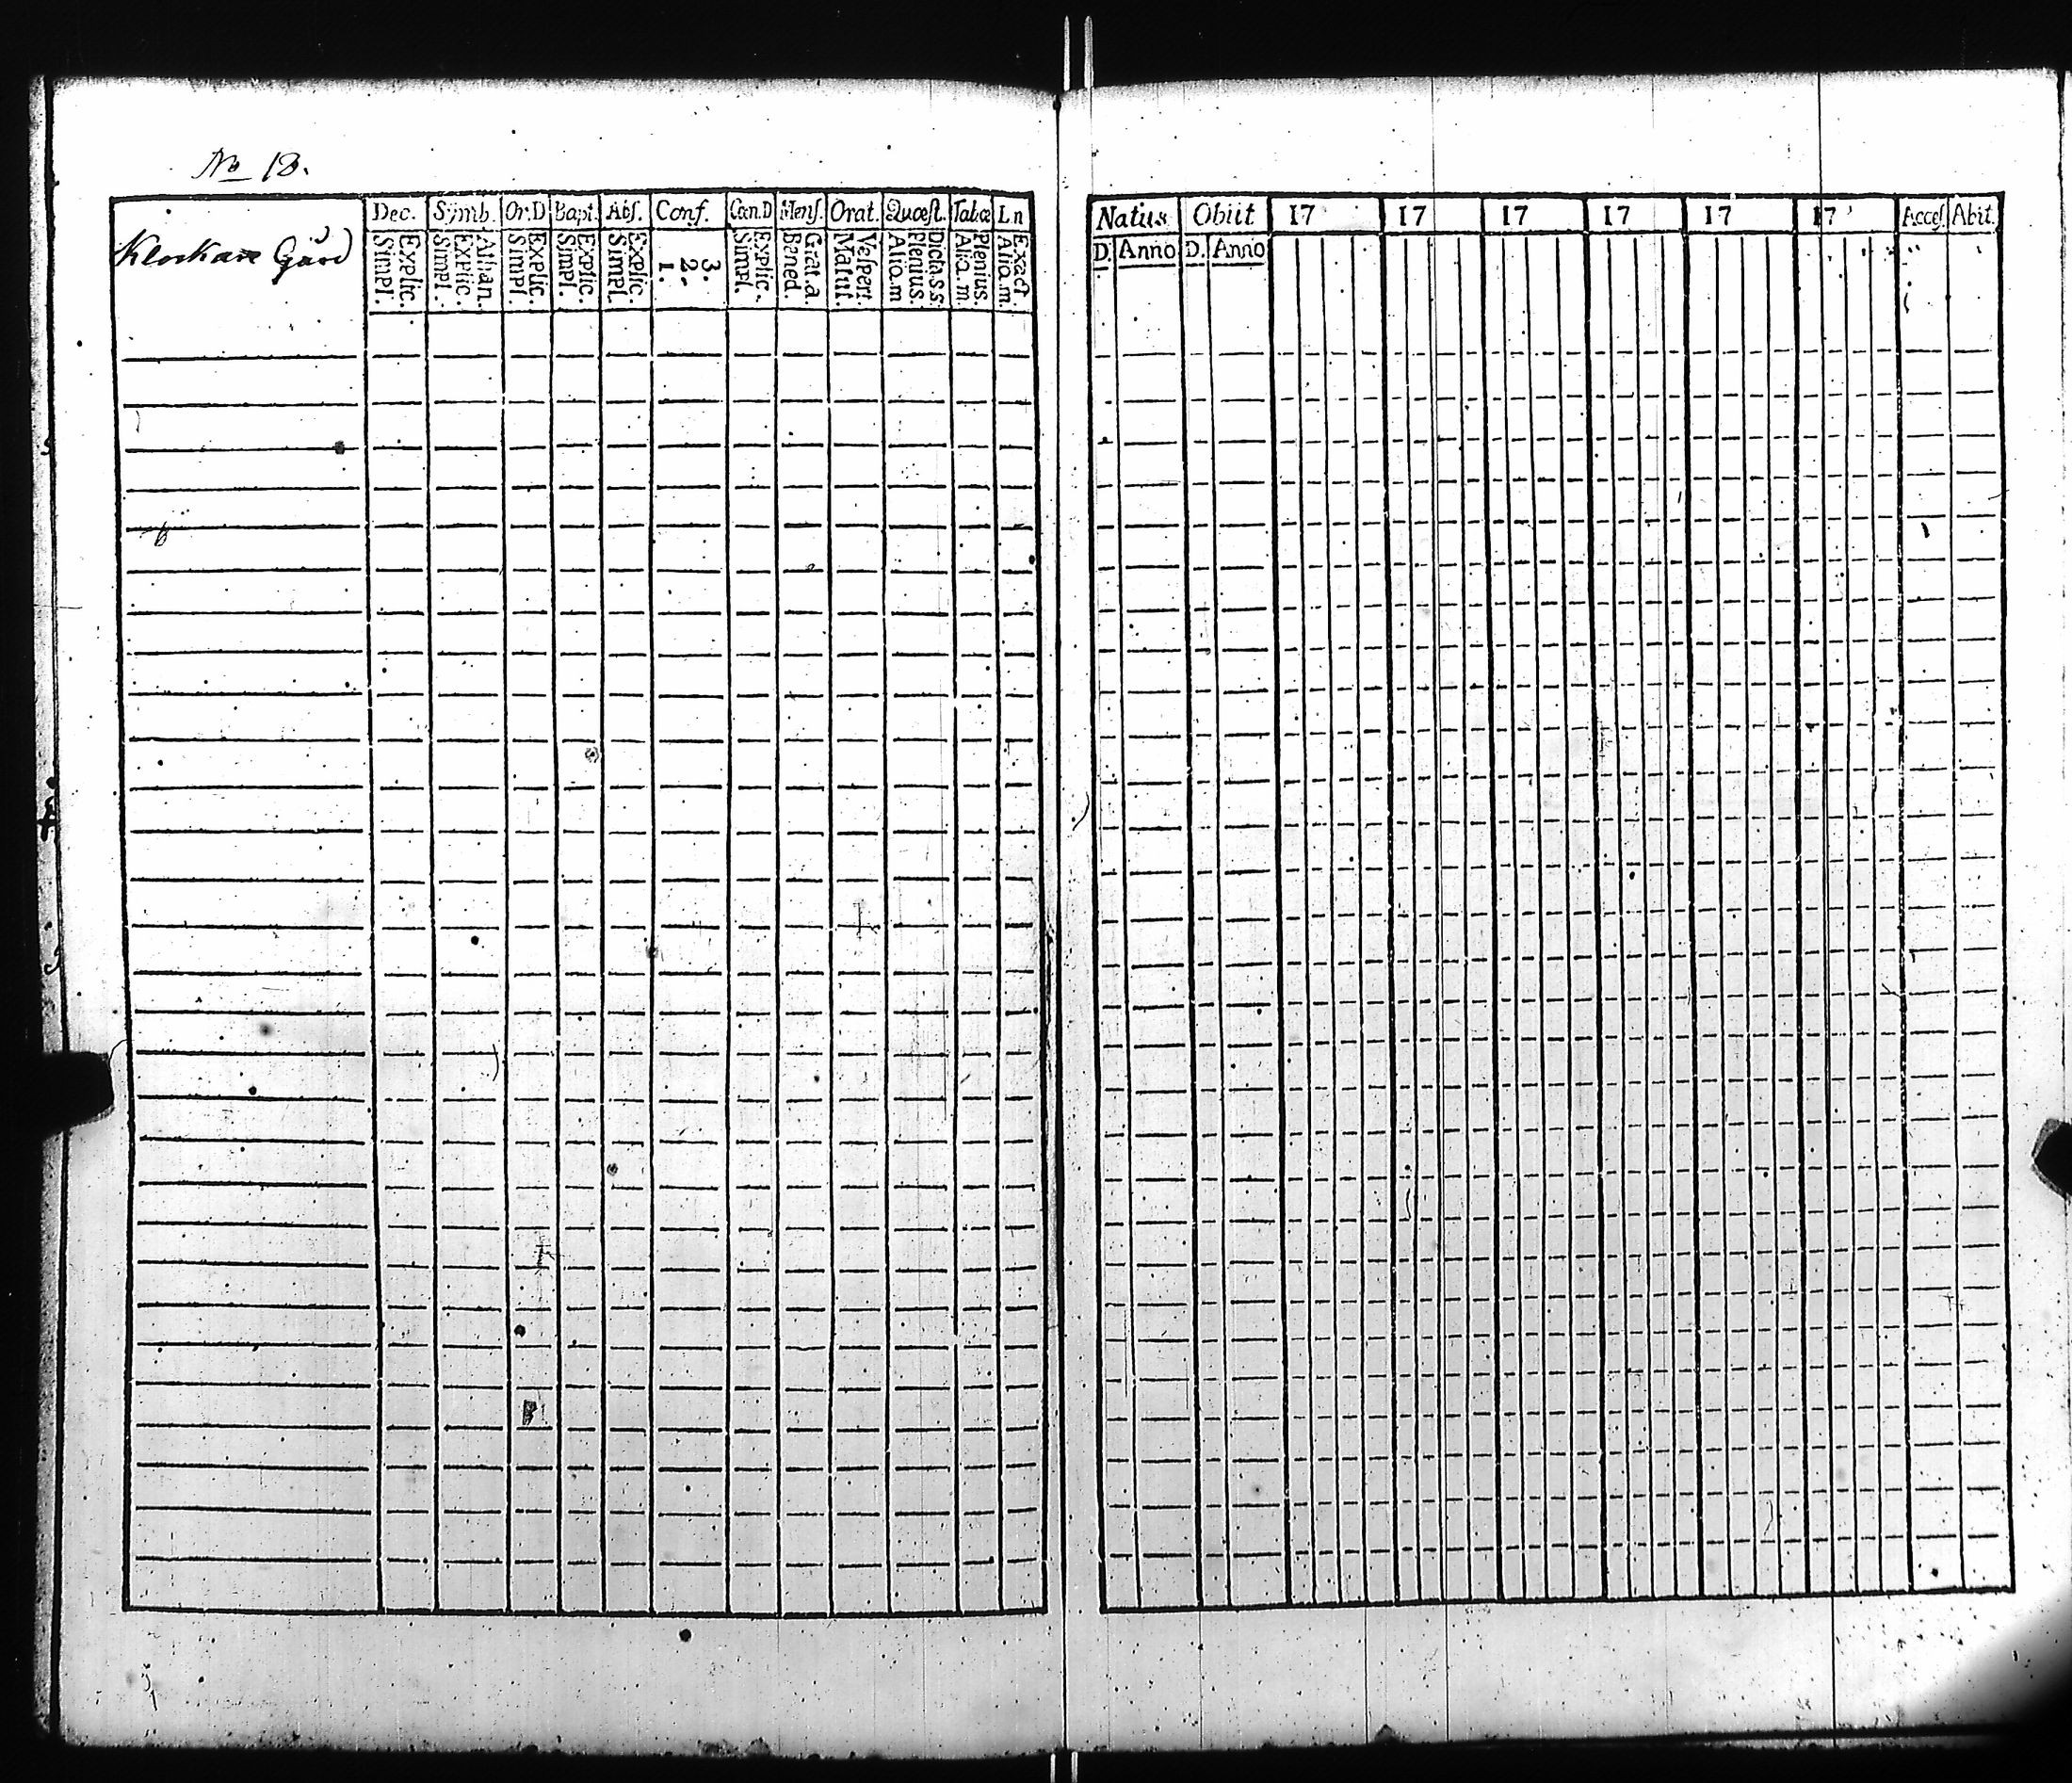 No 13.
Klockare Gård
Dec. Symb. Or.D Bapt. Abs. Conf. Cœn.D Mens. Orat. Quæst. Tabœ Ln
Simpl. Explic. Simpl. Explic. Athan. Simpl. Explic. Simpl. Explic. Simpl. Explic. 1. 2. 3. Simpl. Explic. Bened. Grat.a. Matut. Vespert. Alia.m Plenius. Dicta.s.s. Alia.m. Plenius. Alia.m. Exact.
Natus Obiit 17 17 17 17 17 17 Acces. Abit.
D. Anno D. Anno